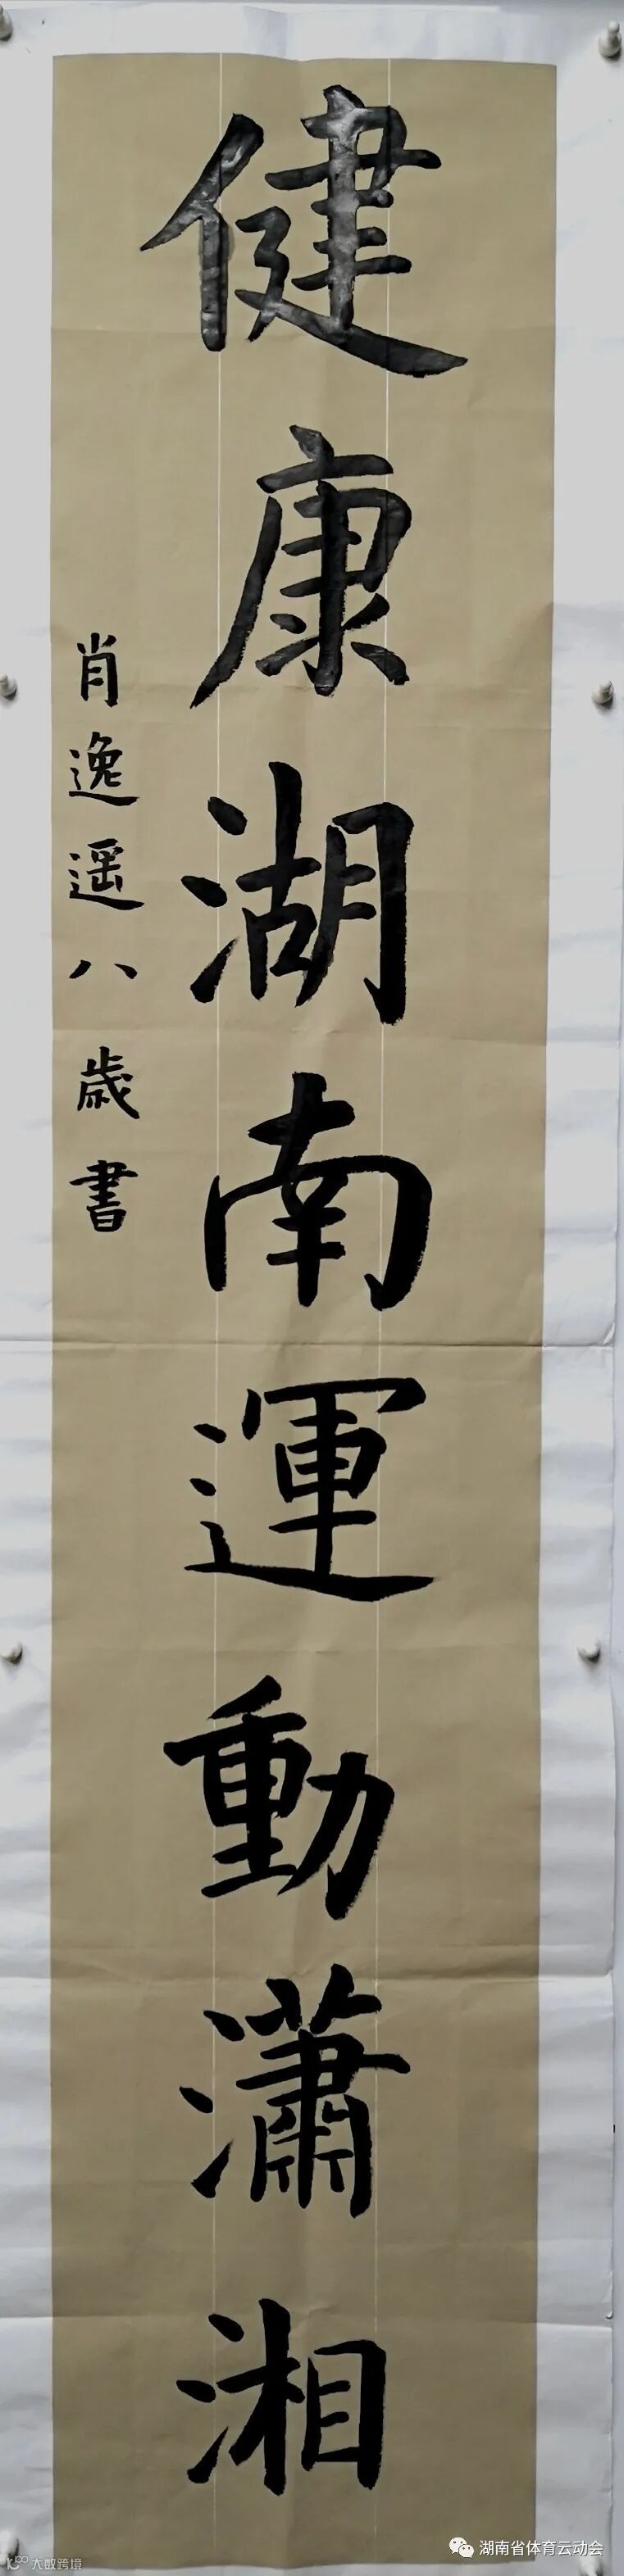 健康湖南運動瀟湘
肖逸遥八歳書
湖南省体育云动会
大数跨境